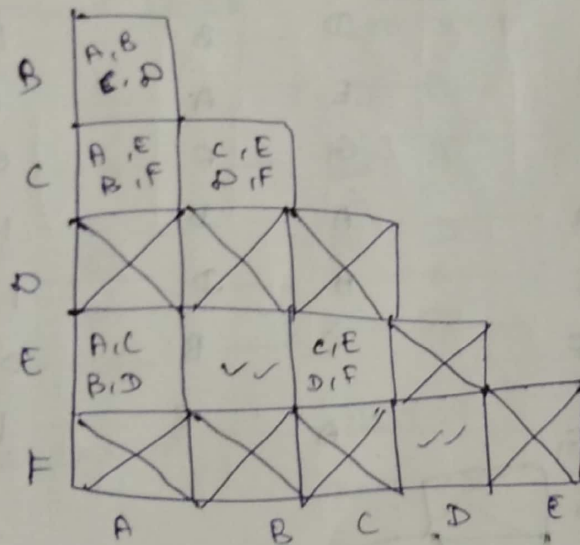 B
A, B
C, D
C
A, E
B, F
C, E
D, F
D
E
A, C
B, D
✓✓
C, E
D, F
F
✓✓
A B C D E